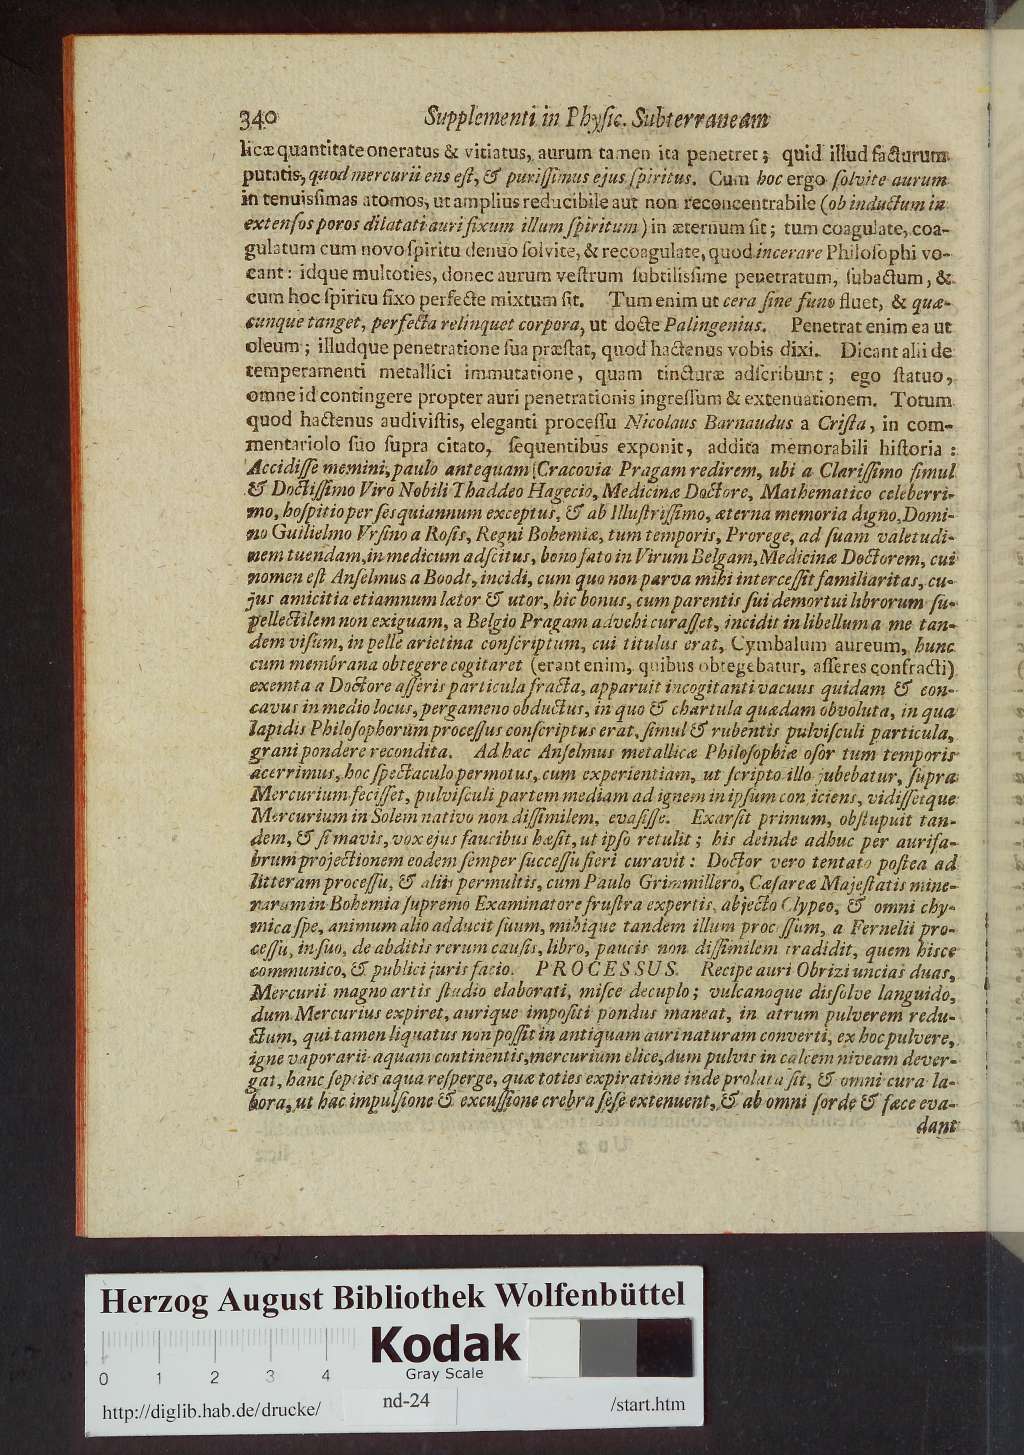 340 Supplementi in Physic. Subterraneam
licæ quantitate oneratus & vitiatus, aurum tamen ita penetret; quid illud facturum
putatis, quod mercurii ens est, & purissimus ejus spiritus. Cum hoc ergo solvite aurum
in tenuissimas atomos, ut amplius reducibile aut non reconcentrabile (ob inductum in
extensos poros dilatati auri fixum illum spiritum) in æternum sit; tum coagulate, coa-
gulatum cum novo spiritu denuo solvite, & recoagulate, quod incerare Philosophi vo-
cant: idque multoties, donec aurum vestrum subtilissime penetratum, subactum, &
cum hoc spiritu fixo perfecte mixtum sit. Tum enim ut cera sine fumo fluet, & quæ-
cunque tanget, perfecta relinquet corpora, ut docte Palingenius. Penetrat enim ea ut
oleum; illudque penetratione sua præstat, quod hactenus vobis dixi. Dicant alii de
temperamenti metallici immutatione, quam tincturæ adscribunt; ego statuo,
omne id contingere propter auri penetrationis ingressum & extenuationem. Totum
quod hactenus audivistis, eleganti processu Nicolaus Barnaudus a Crista, in com-
mentariolo suo supra citato, sequentibus exponit, addita memorabili historia:
Accidisse memini, paulo antequam Cracovia Pragam redirem, ubi a Clarissimo simul
& Doctissimo Viro Nobili Thaddeo Hagecio, Medicinæ Doctore, Mathematico celeberri-
mo, hospitio per sesquiannum exceptus, & ab Illustrissimo, æterna memoria digno, Domi-
no Guilielmo Vrsino a Rosis, Regni Bohemiæ, tum temporis, Prorege, ad suam valetudi-
nem tuendam, in medicum adscitus, bono fato in Virum Belgam, Medicinæ Doctorem, cui
nomen est Anselmus a Boodt, incidi, cum quo non parva mihi intercessit familiaritas, cu-
jus amicitia etiamnum lætor & utor, hic bonus, cum parentis sui demortui librorum su-
pellectilem non exiguam, a Belgio Pragam advehi curasset, incidit in libellum a me tan-
dem visum, in pelle arietina conscriptum, cui titulus erat, Cymbalum aureum, hunc
cum membrana obtegere cogitaret (erant enim, quibus obtegebatur, asseres confracti)
exemta a Doctore asseris particula fracta, apparuit incogitanti vacuus quidam & con-
cavus in medio locus, pergameno obductus, in quo & chartula quædam obvoluta, in qua
lapidis Philosophorum processus conscriptus erat, simul & rubentis pulvisculi particula,
grani pondere recondita. Ad hæc Anselmus metallicæ Philosophiæ osor tum temporis
acerrimus, hoc spectaculo permotus, cum experientiam, ut scripto illo jubebatur, supra
Mercurium fecisset, pulvisculi partem mediam ad ignem in ipsum conjiciens, vidissetque
Mercurium in Solem nativo non dissimilem, evasisse. Exarsit primum, obstupuit tan-
dem, & si mavis, vox ejus faucibus hæsit, ut ipso retulit; his deinde adhuc per aurifa-
brum projectionem eodem semper successu fieri curavit: Doctor vero tentato postea ad
litteram processu, & aliis permultis, cum Paulo Grimmillero, Cæsareæ Majestatis mine-
rarum in Bohemia supremo Examinatore frustra expertis, abjecto Clypeo, & omni chy-
mica spe, animum alio adducit suum, mihique tandem illum processum, a Fernelii pro-
cessu, in suo, de abditis rerum causis, libro, paucis non dissimilem tradidit, quem hisce
communico, & publici juris facio. PROCESSUS. Recipe auri Obrizi uncias duas,
Mercurii magno artis studio elaborati, misce decuplo; vulcanoque dissolve languido,
dum Mercurius expiret, aurique impositi pondus maneat, in atrum pulverem redu-
ctum, qui tamen liquatus non possit in antiquam auri naturam converti, ex hoc pulvere,
igne vaporarii aquam continentis, mercurium elice, dum pulvis in calcem niveam dever-
gat, hanc septies aqua resperge, quæ toties expiratione inde prolata sit, & omni cura la-
bora, ut hac impulsione & excussione crebra sese extenuent, & ab omni sorde & fæce eva-
dant
Herzog August Bibliothek Wolfenbüttel
Kodak
Gray Scale
0 1 2 3 4
http://diglib.hab.de/drucke/ nd-24 /start.htm